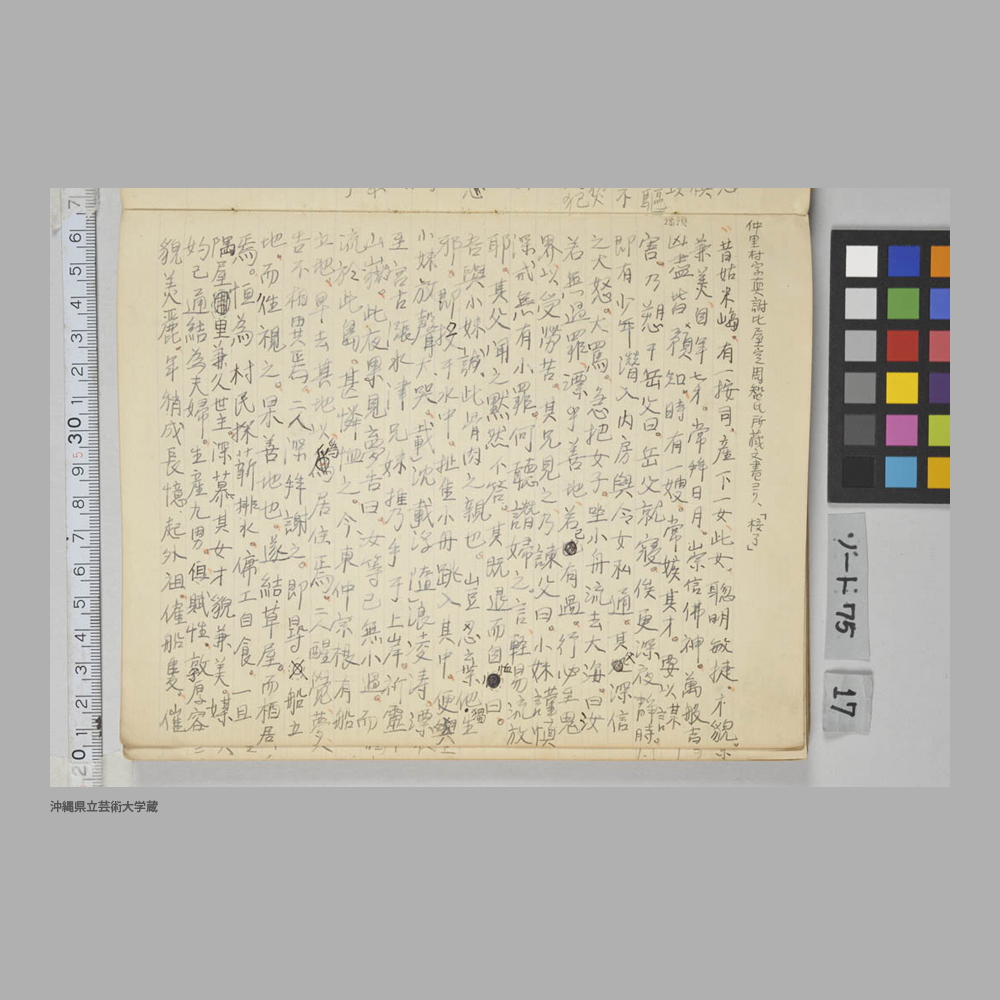 仲里村字真謝比屋定周懃氏所蔵文書ヨリ、「模ス」
昔姑米島。有一按司。産下一女此女。聡明敏捷 才貌
兼美。自年七才。常拝日月。崇信佛神。萬般吉
凶盡皆預知。時有一嫂。常嫉其才。要以謀
害。乃愬于岳父曰。岳父就寝。俟更深夜静時。
即有少年潜入内房。與令女私通。其父深信
之大怒。大罵。急把女子。坐小舟流去大海。曰汝
若無過罪。漂乎善地。若己有過。行必至鬼
界以受勞苦。其兄見之乃諫父曰。小妹謹慎
深戒無有小罪。何聴讒婦之言輕易流放
耶。其父聞之黙然不答。其既退而自 曰
吾與小妹 此骨肉之親也。豈忍棄他 生
邪。即投于水中。扯隹小舟跳入其中。便與
小妹放聲大哭。載沈載浮。随浪凌涛 漂
至宮古漲水津 兄妹携手于上岸。祈霊
山嶽。此夜果見夢。告曰汝等己無小過。而
流於此島。甚憐恤之。今東仲宗根有船
立地。早去其地以為居住焉。二人醒覚夢
告不相異焉。二人深拝謝之。即尋 船立
地。而往視之果善地也。遂結草屋。而栖居
焉。恒為村民採薪排水。傭工自食。一旦
隅屋里兼久世主。深慕其女才貌兼美。媒
妁己通結為夫婦。生産九男但賦性敦厚容
貌美麗。年稍成長憶起外祖。催船隻。催
ゾード: 75
17
沖縄県立芸術大学蔵